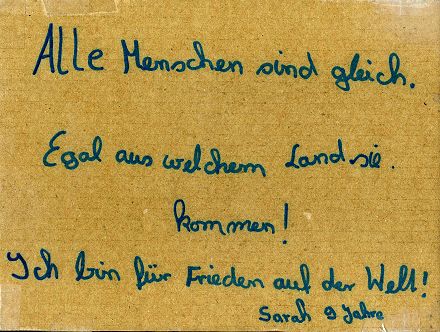 Alle Menschen sind gleich.
Egal aus welchem Land sie.
kommen!
Ich bin für Frieden auf der Welt!
Sarah 9 Jahre